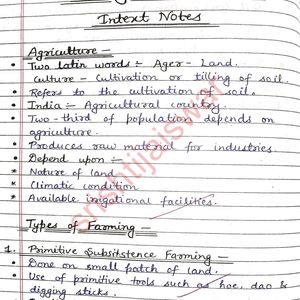 Intext Notes
Agriculture :-
• Two latin words :- Ager - Land.
Culture - Cultivation or tilling of soil
• Refers to the cultivation of soil.
• India :- Agricultural country.
• Two-third of population depends on
agriculture.
• Produces raw material for industries.
• Depend upon :-
* Nature of land
* Climatic condition
* Available irrigational facilities.
Types of Farming :-
1. Primitive Subsitstence Farming :-
• Done on small patch of land.
• Use of primitive tools such as hoe, dao &
digging sticks.
srishtijaiswal